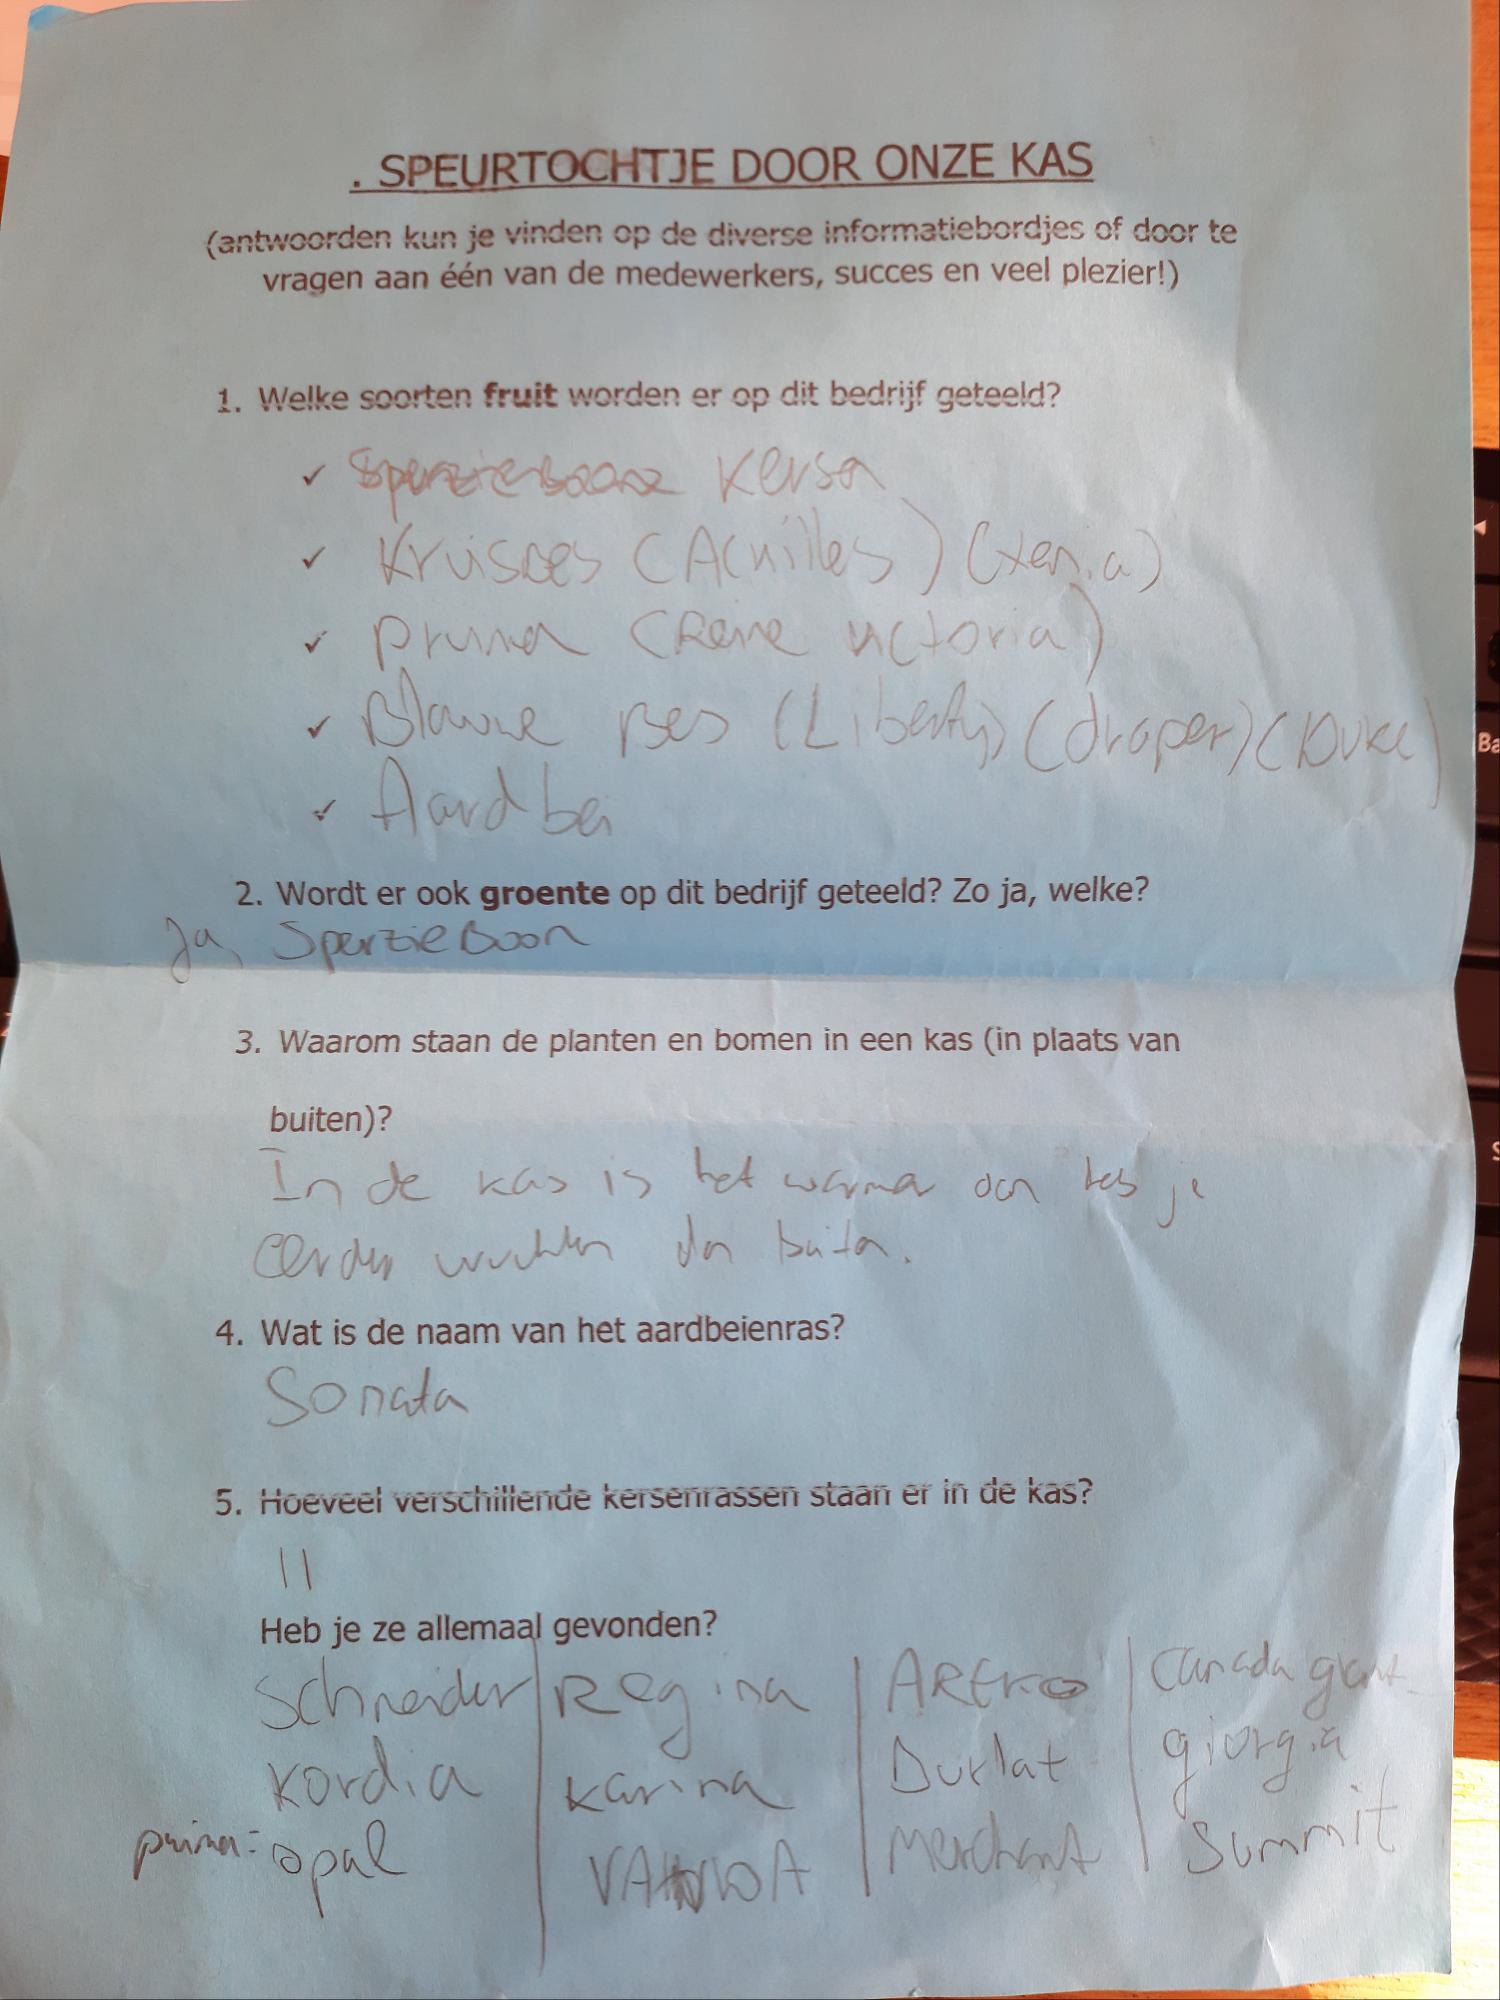 . SPEURTOCHTJE DOOR ONZE KAS
(antwoorden kun je vinden op de diverse informatiebordjes of door te
vragen aan één van de medewerkers, succes en veel plezier!)
1. Welke soorten fruit worden er op dit bedrijf geteeld?
✓ Sperzieboone Kersen
✓ Kruisbes (Achilles) (xenia)
✓ pruimen (Reine victoria)
✓ Blauwe Bes (Liberty) (draper) (Duke)
✓ Aardbei
2. Wordt er ook groente op dit bedrijf geteeld? Zo ja, welke?
Ja, SperzieBoon
3. Waarom staan de planten en bomen in een kas (in plaats van
buiten)?
In de kas is het warmer dan heb je
eerder vruchten dan buiten.
4. Wat is de naam van het aardbeienras?
Sonata
5. Hoeveel verschillende kersenrassen staan er in de kas?
11
Heb je ze allemaal gevonden?
Schneider | Regina | AREKO | Canada giant
Kordia | Karina | Burlat | giorgia
pruimen: opal | VANDA | Merchant | Summit